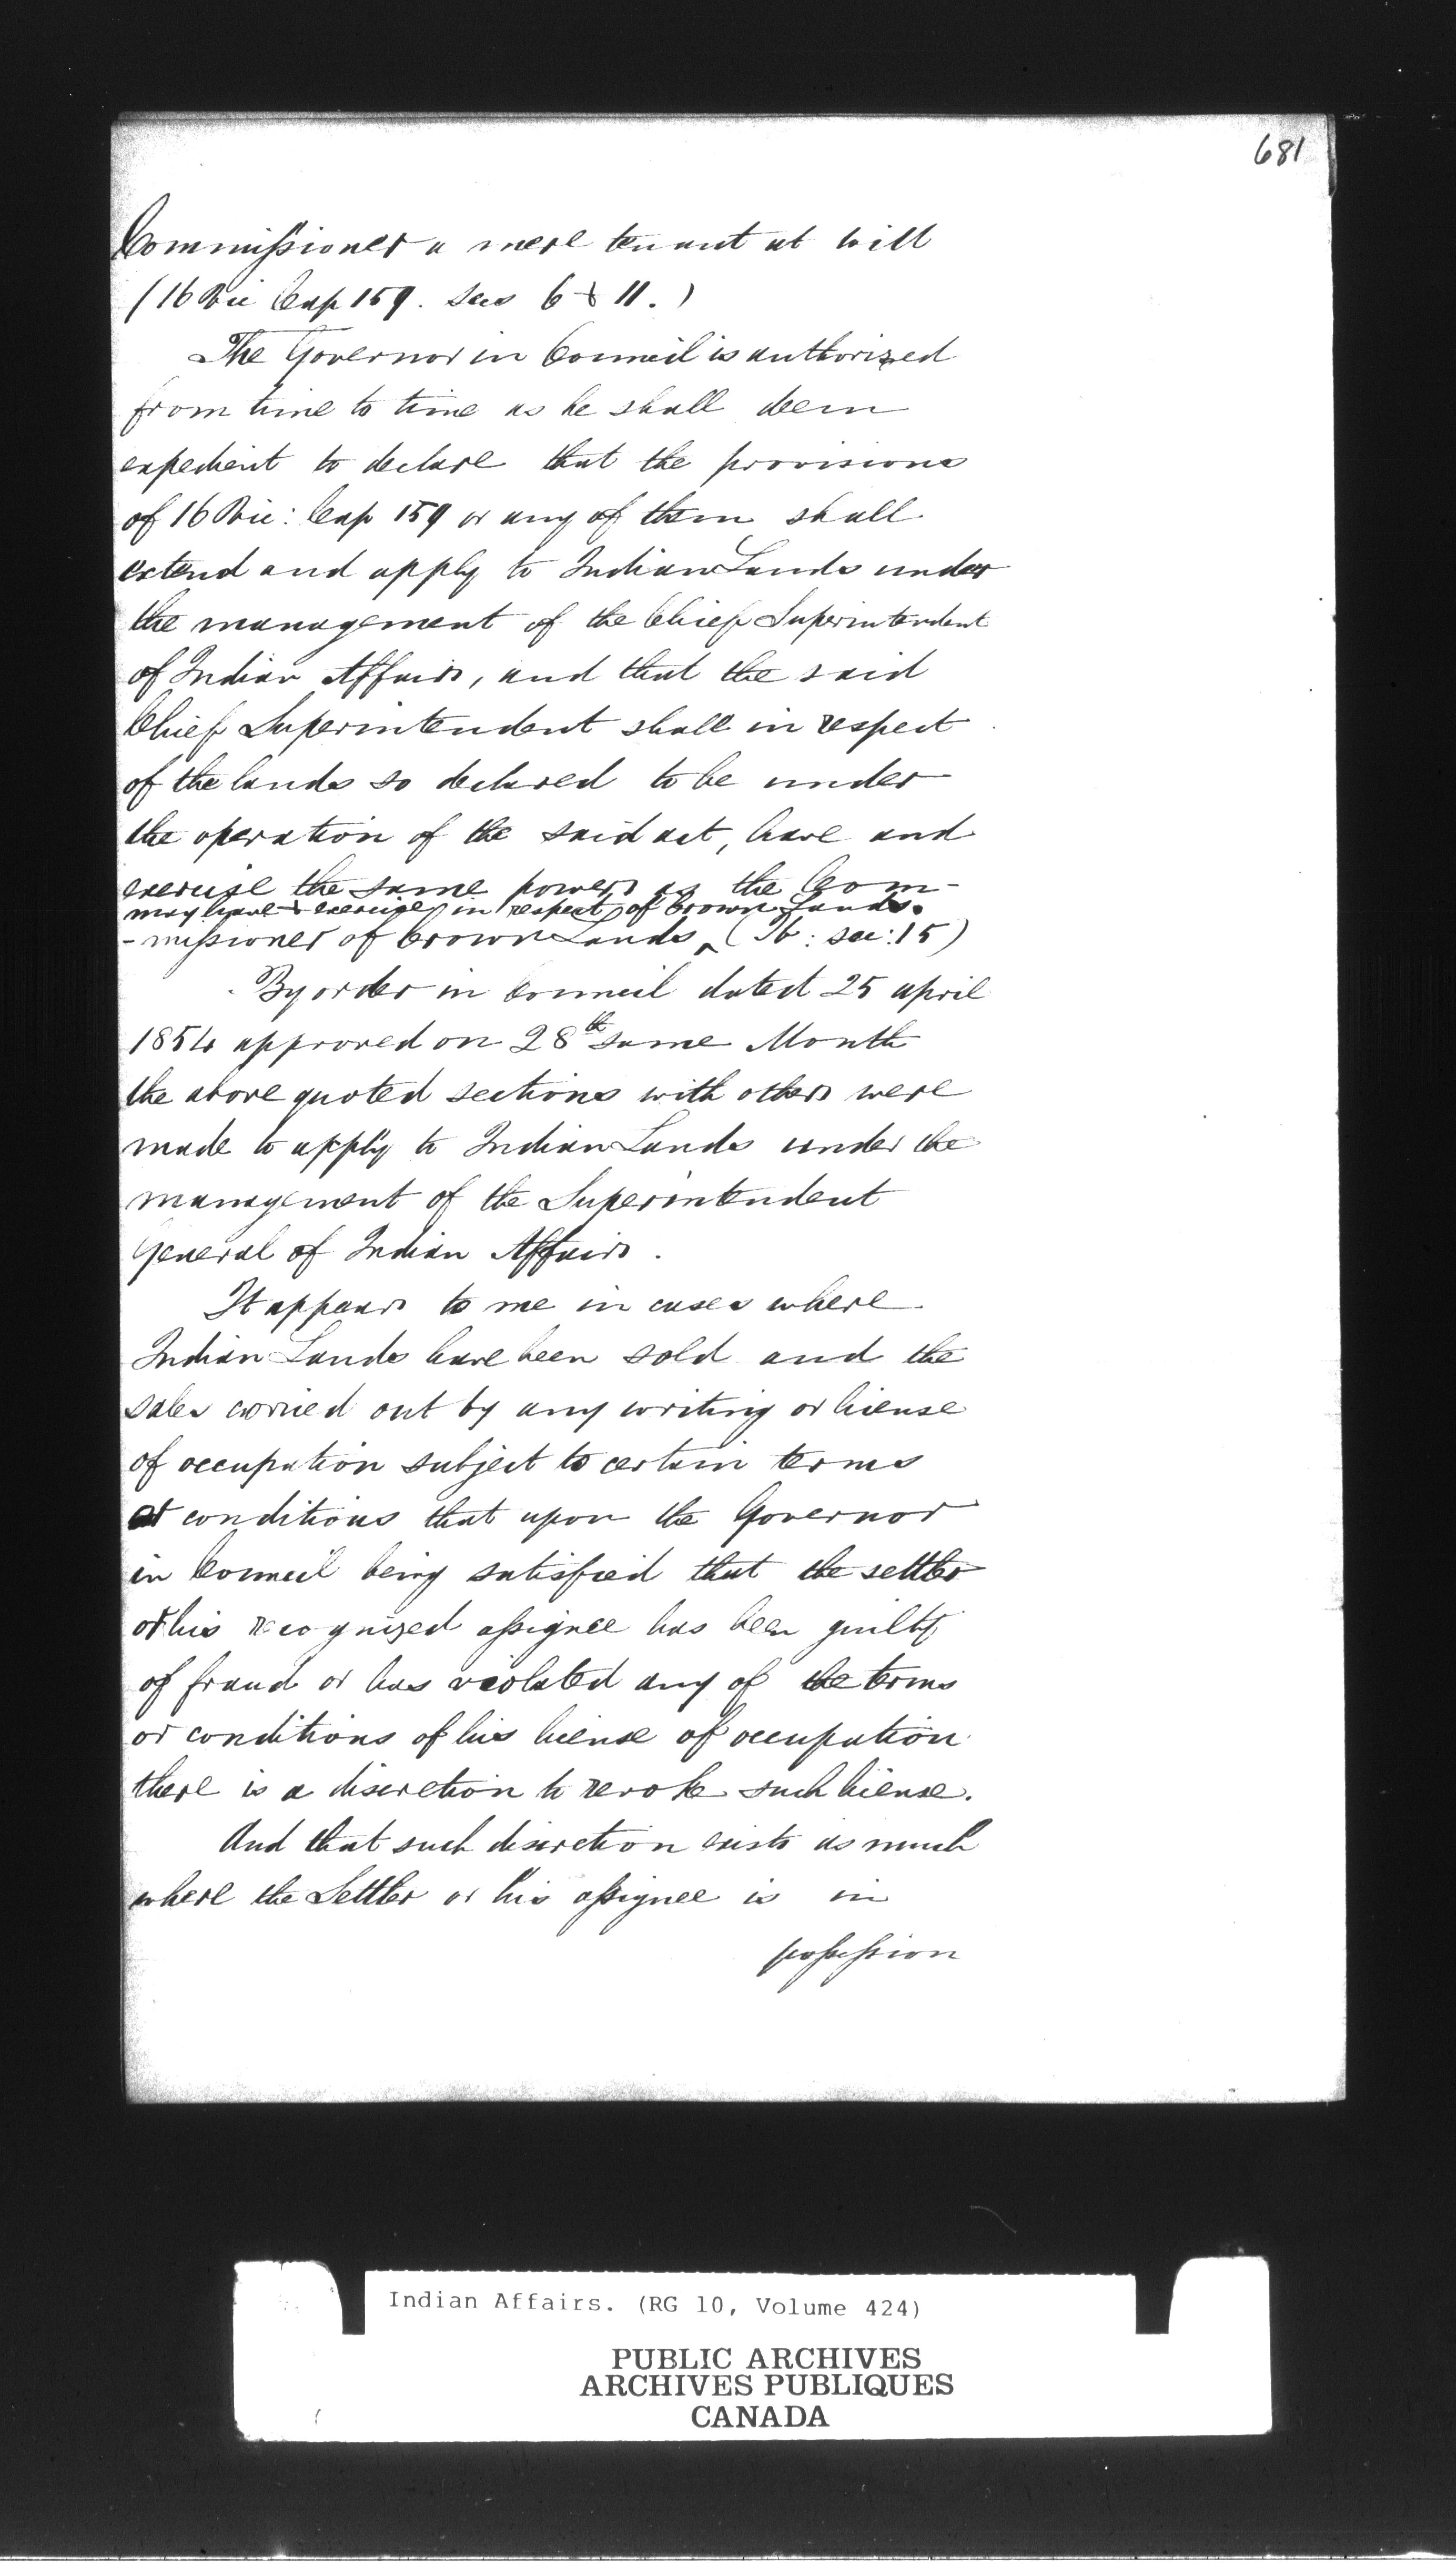 681
Commissioner a mere tenant at will
(16 Vic Cap 159. secs 6 & 11.)
The Governor in Council is authorized
from time to time as he shall deem
expedient to declare that the provisions
of 16 Vic: Cap 159 or any of them shall
extend and apply to Indian Lands under
the management of the Chief Superintendent
of Indian Affairs, and that the said
Chief Superintendent shall in respect
of the lands so declared to be under
the operation of the said act, have and
exercise the same powers as the Com-
may have & exercise in respect of Crown Lands.
-missioner of Crown Lands ‸ (Ib: sec: 15)
By order in Council dated 25 april
1854 approved on 28th same Month
the above quoted sections with others were
made to apply to Indian Lands under the
management of the Superintendent
General of Indian Affairs.
It appears to me in cases where
Indian Lands have been sold and the
sales carried out by any writing or license
of occupation subject to certain terms
or conditions that upon the Governor
in Council being satisfied that the settler
or his recognized assignee has been guilty
of fraud or has violated any of the terms
or conditions of his license of occupation
there is a discretion to revoke such license.
And that such discretion exists as much
where the Settler or his assignee is in
possession
Indian Affairs. (RG 10, Volume 424)
PUBLIC ARCHIVES
ARCHIVES PUBLIQUES
CANADA